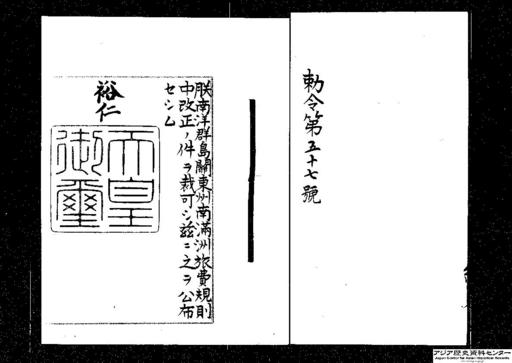 勅令第五十七號
朕南洋群島關東州南滿洲旅費規則
中改正ノ件ヲ裁可シ茲ニ之ヲ公布
セシム
裕仁
天皇
御璽
アジア歴史資料センター
Japan Center for Asian Historical Records